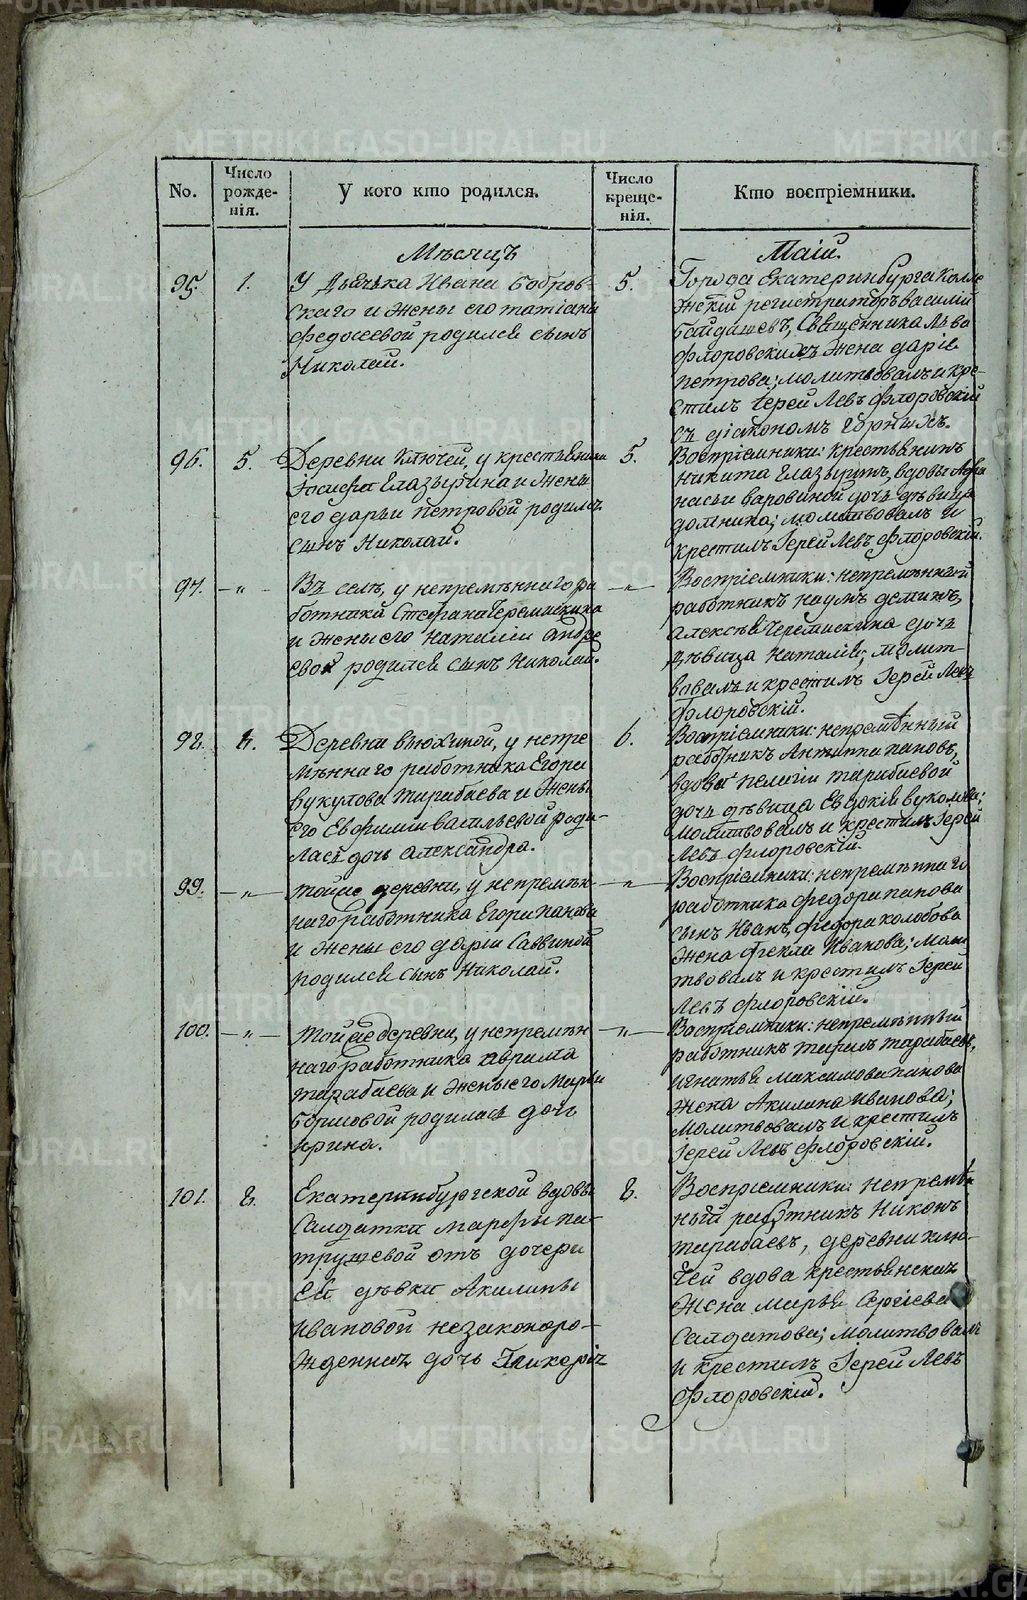 METRIKI.GASO-URAL.RU
No.
Число рожде-нія.
У кого кто родился.
Число креще-нія.
Кто воспріемники.
Мѣсяцъ
Маій.
95.
1.
У Дьячка Ивана Бобров-
скаго и жены его татіаны
Федосеевой родился сынъ
Николай.
5.
Города Екатеринбурга Колле
жскій регистраторъ василій
Священника Льва
Флоровскихъ жена даріе
петрова; молитвовалъ и кре-
стилъ іерей Левъ Флоровскій
съ діакономъ
96.
5.
Деревни Ключей, у крестьянина
Іосифа Глазырина и жены
его дарьи петровой родился
сынъ Николай.
5.
Воспріемники: крестьянинъ
никита Глазыринъ, вдовы
дочь дѣвица
домника; молитвовалъ и
крестилъ Іерей Левъ Флоровскій.
97.
— „ —
Въ селѣ, у непремѣннаго ра
ботника Стефана Черемискина
и жены его наталіи андре
евой родился сынъ Николай.
— „ —
Воспріемники: непремѣнный
работникъ наумъ деминъ,
алексѣя Черемискина дочь
дѣвица наталія; молит
вовалъ и крестилъ Іерей Левъ
Флоровскій.
98.
Деревни вьюхиной, у непре
мѣннаго работника Егора
вукулова тарабаева и жены
его Евфиміи васильевой роди-
лась дочь александра.
6.
Воспріемники: непремѣнный
работникъ Антипа пановъ,
вдовы пелагіи тарабаевой
дочь дѣвица Евдокія вуколова;
молитвовалъ и крестилъ Іерей
Левъ Флоровскій.
99.
— „ —
тойже деревни, у непремѣн-
наго работника Егора панова
и жены его даріи Саввиной
родился сынъ Николай.
— „ —
Воспріемники: непремѣннаго
работника федора панова
сынъ Иванъ, федора колобова
жена фекла Иванова; моли
твовалъ и крестилъ Іерей
Левъ Флоровскій.
100.
— „ —
тойже деревни, у непремѣн
наго работника аврама
тарабаева и жены его Марьи
борисовой родилась дочь
ирина.
— „ —
Воспріемники: непремѣнный
работникъ тарабаевъ,
игнатья максимова панова
жена Акилина иванова;
молитвовалъ и крестилъ
Іерей Левъ Флоровскій.
101.
8.
Екатеринбургской вдовы
Салдатки марфы па-
трушевой отъ дочери
ея дѣвки Акилины
ивановой незаконоро-
жденная дочь Гликерія
8.
Воспріемники: непремѣн
ный работникъ Никонъ
тарабаевъ, деревни клю-
чей вдова крестьянская
жена марья Сергіева
Салдатова; молитвовалъ
и крестилъ Іерей Левъ
Флоровскій.